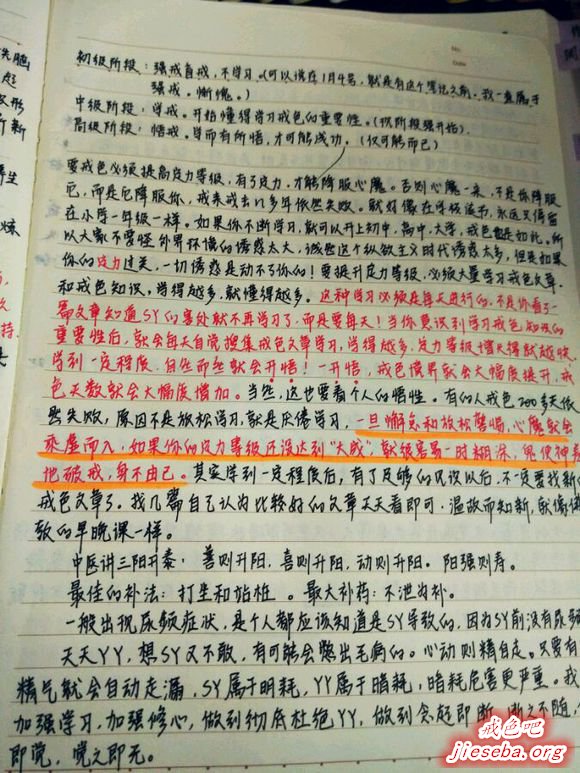 No.
Date
初级阶段：强戒自戒，不学习。(可以说在1月4号，就是有这个笔记之前，我一直属于
强戒。惭愧。)
中级阶段：学戒。开始懂得学习戒色的重要性。(现阶段强开始)。
高级阶段：悟戒。学而有所悟，才可能成功。(仅可能而已)
要戒色必须提高定力等级，有了定力，才能降服心魔。否则心魔一来，不是你降服
它，而是它降服你，我来戒去10多年依然失败。就好像在学校读书，永远只停留
在小学一年级一样。如果你不断学习，就可以升上初中，高中，大学，戒色也是如此。所
以大家不要怪外界环境的诱惑太大，诚然这个纵欲主义时代诱惑太多，但是如果
你的定力过关，一切诱惑是动不了你的！要提升定力等级，必须大量学习戒色文章
和戒色知识，学得越多，就懂得越多。这种学习必须是每天进行的，不是你看了一
篇文章知道SY的害处就不再学习了，而是要每天！当你意识到学习戒色知识的
重要性后，就会每天自觉搜集戒色文章学习，学得越多，定力等级增长得就越快
学到一定程度，自然而然就会开悟！一开悟，戒色境界就会大幅度提升，戒
色天数就会大幅度增加。当然，这也要看个人的悟性。有的人戒色200多天依
然失败，原因不是放松学习，就是厌倦学习，一旦懈怠和放松警惕，心魔就会
乘虚而入，如果你的定力等级还没达到“大成”，就很容易一时糊涂，鬼使神差
把破戒，身不由己。其实学到一定程度后，有了足够的见识以后，不一定要找新的
戒色文章了。找几篇自己认为比较好的文章天天看即可，温故而知新，就像佛
教的早晚课一样。
中医讲三阳开泰：善则升阳，喜则升阳，动则升阳。阳强则寿。
最佳的补法：打坐和站桩。最大补药：不泄为补。
一般出现尿频症状，是个人都应该知道是SY导致的，因为SY前没有尿频
天天YY，想SY又不敢，有可能会憋出毛病的。心动则精自走。只要有
精气就会自动走漏，SY属于明耗，YY属于暗耗，暗耗危害更严重。我
加强学习，加强修心，做到彻底杜绝YY，做到念起即断，断之不随，
即觉，觉之即无。
洗脑
起
戒色吧
jieseba.org